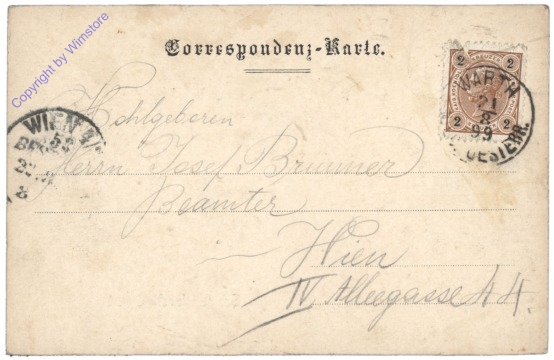 Copyright by Wimstore
Correspondenz-Karte.
2 2
2 2
WARTH
21
8
99
OESTERR.
WIEN
Wohlgeboren
Herrn Josef Brunner
Beamter
Wien
IV Alleegasse 44.